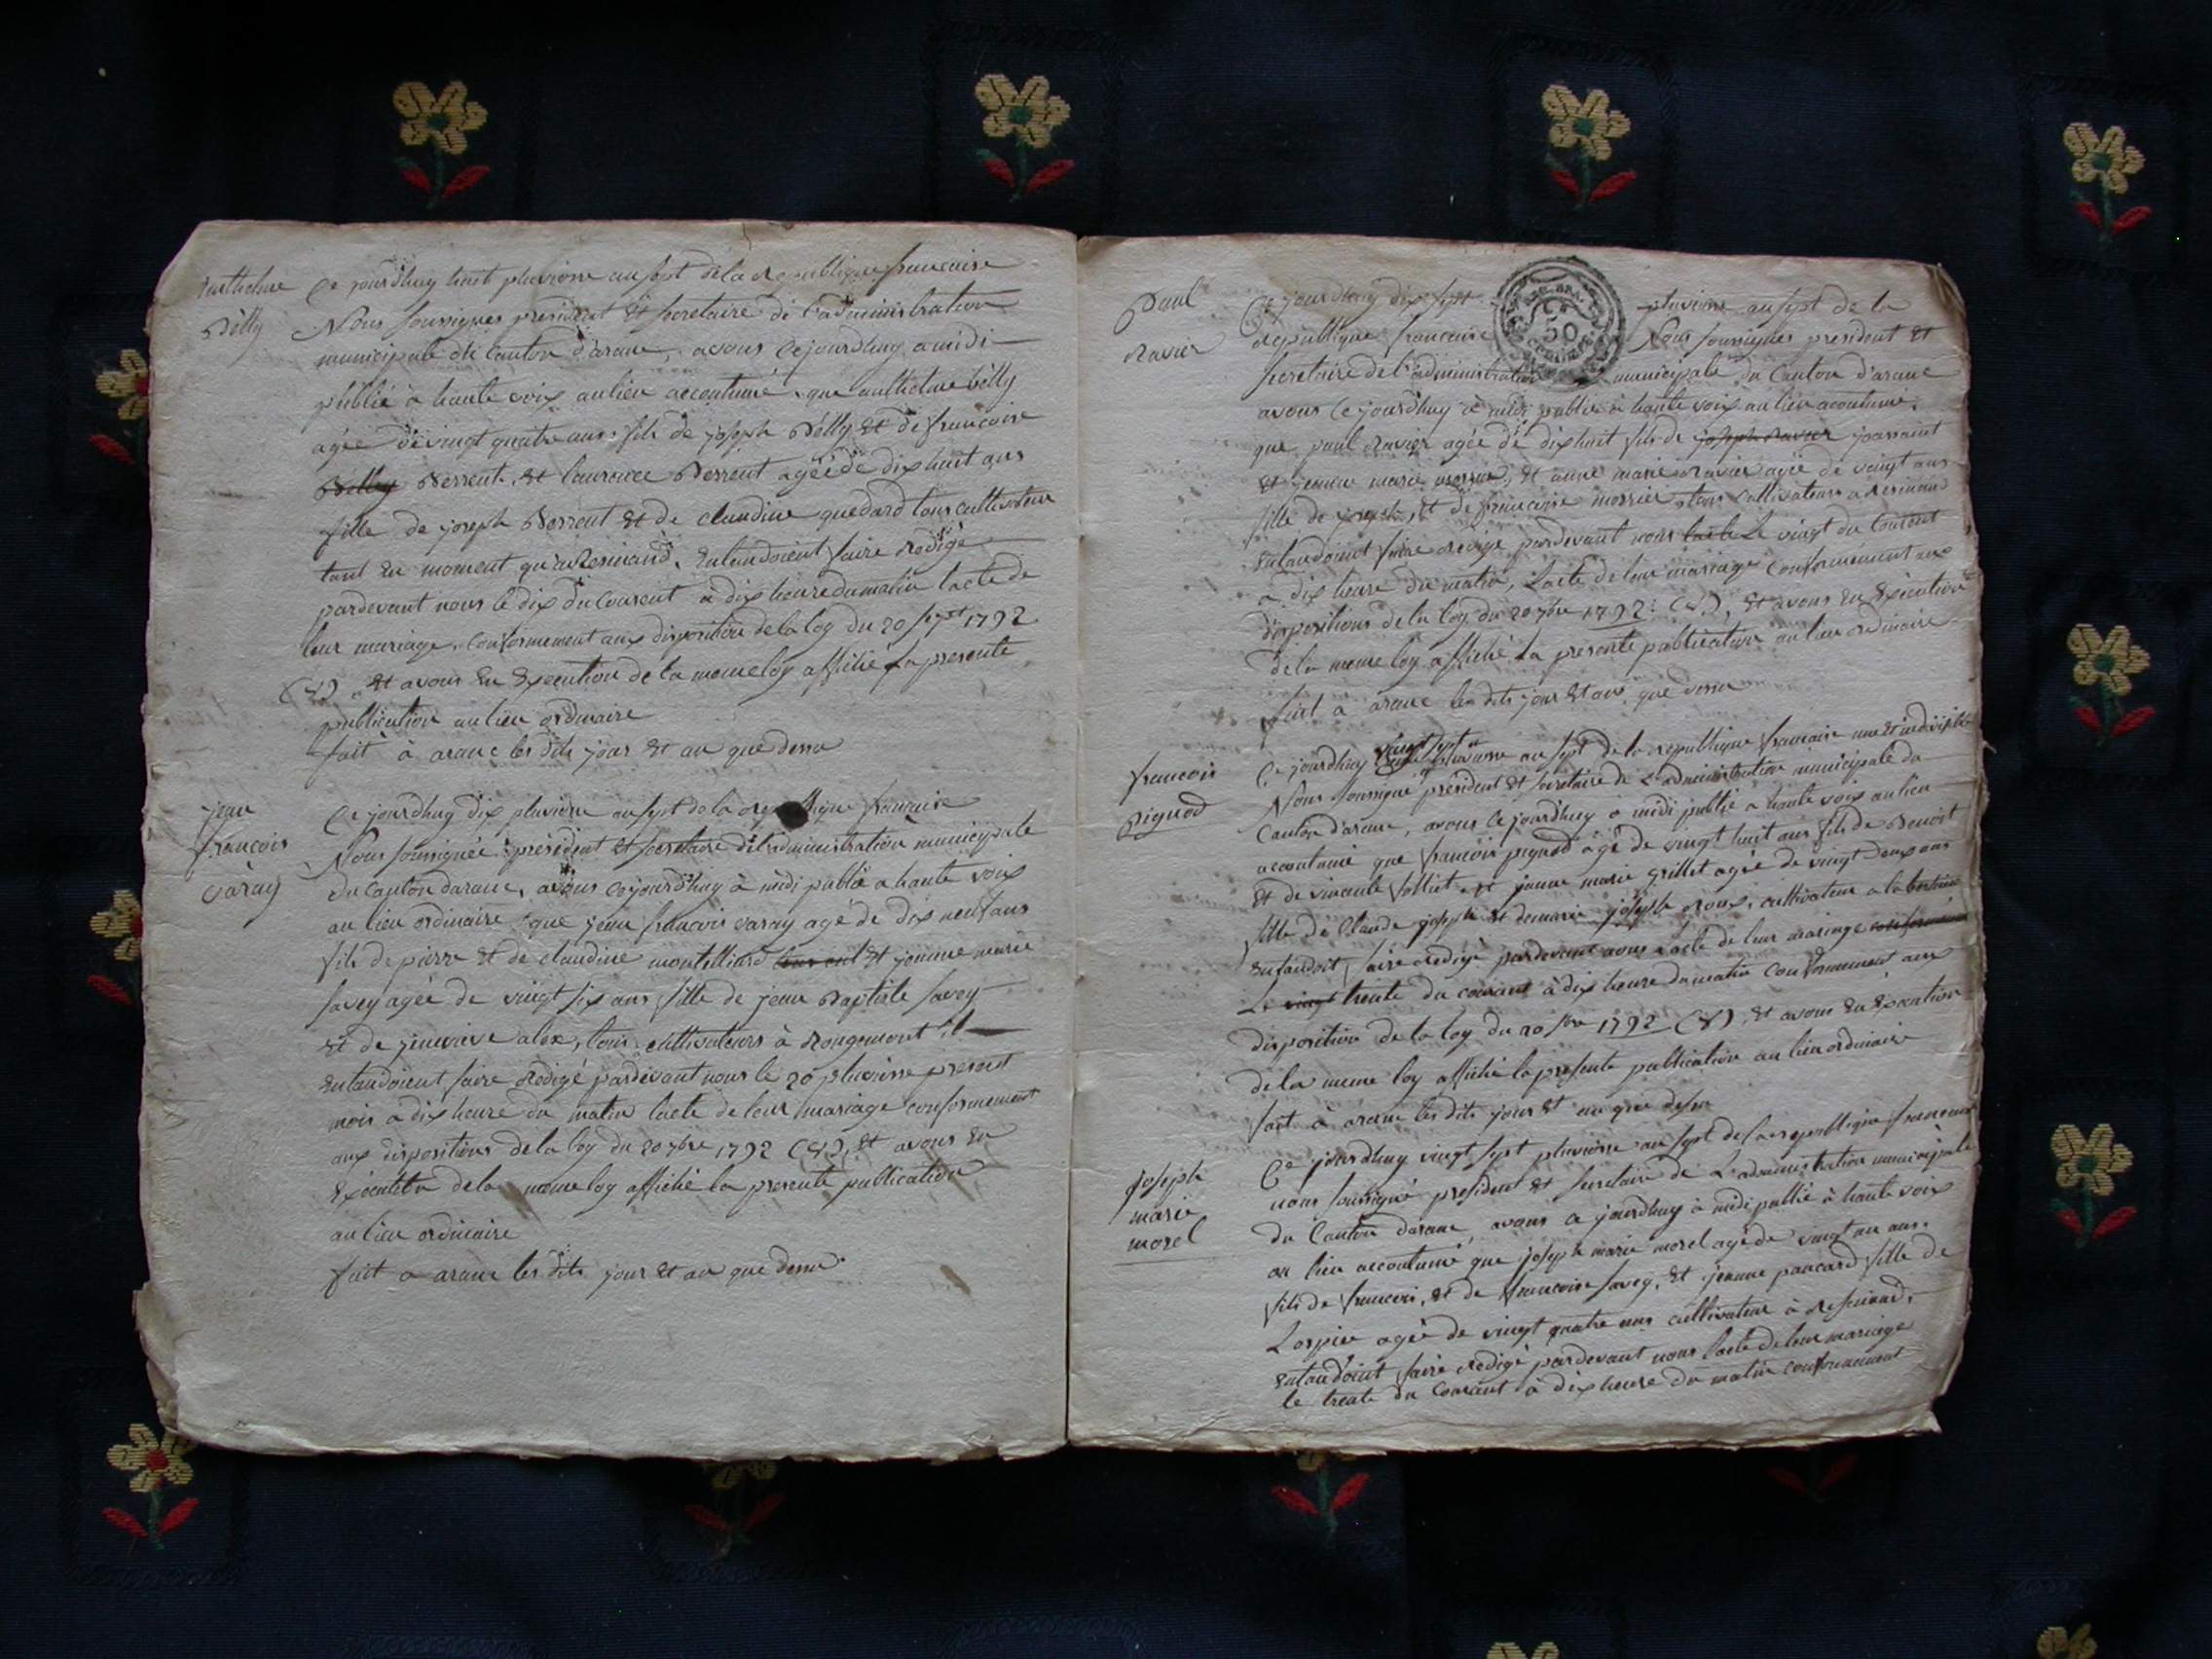 anthelme
Billy
Ce jourdhuy huit pluviose an sept de la republique francaise
Nous soussignes president et secretaire de l'administration
municipale du Canton d'aranc, avons Cejourdhuy a midi
publié à haute voix au lieu accoutumé, que anthelme billy
agée de vingt quatre ans fils de joseph Billy et de francoise
Billy Berrent, et laurence Berrent agée de dix huit ans
fille de joseph Berrent et de claudine quedard tous cultivateur
tant en moment qu'a Resinand, Entandoient faire Redigé
pardevant nous le dix du Courent a dix heure du matin lacte de
leur mariage, Conformement aux disposition de la loy du 20 sept 1792
(&), et avons En Execution de la meme loy affiché la presente
publication au lieu ordinaire
fait à aranc les dits jour et an que dessu
jean
francois
Varay
Ce jourdhuy dix pluviose an sept de la republique francaise
Nous soussignée president et secretaire de l'administration municipale
du Canton daranc, avons Cejourdhuy à midi publié a haute voix
au lieu ordinaire que jean francois varay agé de dix neuf ans
fils de pierre et de claudine montilliard et jeanne marie
savey agée de vingt six ans fille de jean Baptiste savey
et de jenevieve alex, tous cultivateurs à Rougemont
Entandoient faire Redigé pardevant nous le 20 pluviose present
mois a dix heure du matin lacte de leur mariage conformement
aux dispositions de la loy du 20 7bre 1792 (&), et avons En
Execution de la meme loy affiché la presente publication
au lieu ordinaire
fait a aranc les dits jour et an que dessu
Paul
Ravier
Ce jourdhuy dix sept pluviose an sept de la
Republique francaise Nous soussignes president et
secretaire de l'administration municipale du Canton d'aranc
avons Cejourdhuy à midi publié a haute voix au lieu acoutumé,
que paul Ravier agée de dix huit fils de joseph Ravier
et jeanne marie et anne marie Ravier agée de vingt ans
fille de joseph, et de francoise tous Cultivateurs a Resinand
Entandoient faire Redigé pardevant nous le vingt du Courent
a dix heure du matin, Lacte de leur mariage Conformement aux
dispositions de la loy du 20 7bre 1792 (&), et avons En Execution
de la meme loy affiché la presente publication au lieu ordinaire
fait à aranc les dits jour et an que dessu
francois
pignod
Ce jourdhuy vingt sept pluviose an sept de la republique francaise une et indivisible
Nous soussigné president et secretaire de L'administration municipale du
Canton d'aranc, avons Ce jourdhuy a midi publié a haute voix au lieu
accoutumé que francois pignod agé de vingt huit ans fils de Benoit
et de vincente folliet et jeanne marie grillet agée de vingt deux ans
fille de Claude joseph et de marie joseph Roux, cultivateur a la
Entandoit faire Redigé pardevant nous Lacte de leur mariage
Le vingt trente du courant à dix heure du matin Conformement aux
disposition de la loy du 20 1792 (&), et avons En Execution
de la meme loy affiché la presente publication au lieu ordinaire
fait à aranc les dits jour et an que dessu
joseph
marie
morel
Ce jourdhuy vingt sept pluviose an sept de la republique francaise
nous soussigné president et secretaire de L'administration municipale
du Canton daranc, avons Ce jourdhuy à midi publié à haute voix
au lieu accoutumé que joseph marie morel agé de vingt un ans,
fils de francois, et de francoise savey, et jeanne pancard fille de
agée de vingt quatre ans cultivateur à Resinand,
Entandoint faire Redigé pardevant nous lacte de leur mariage
le trente du Courant à dix heure du matin conformement